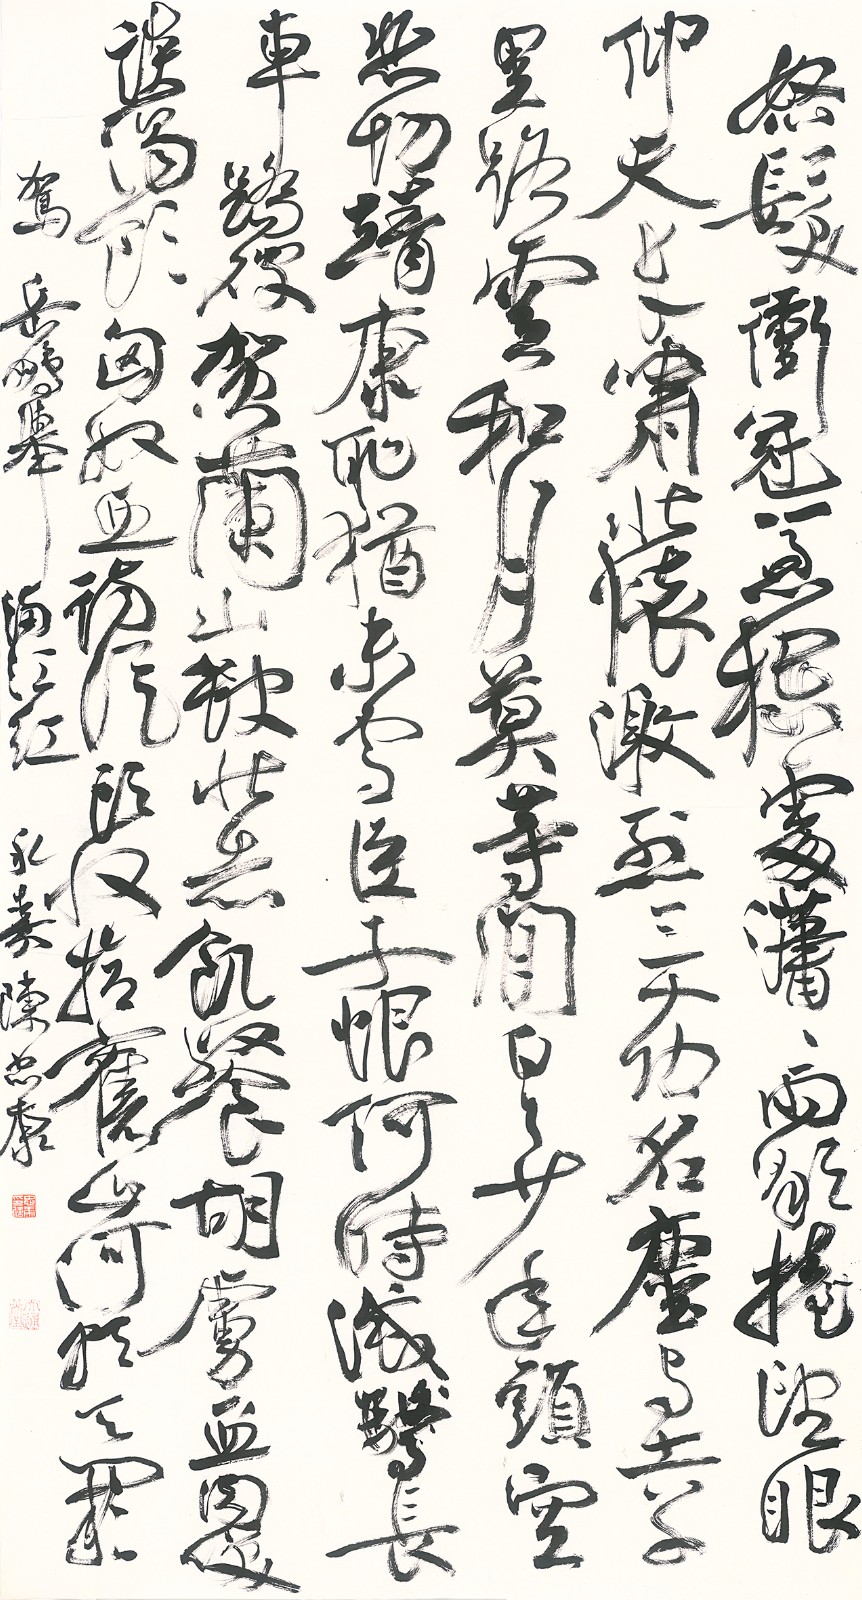 怒髮衝冠凭欄處瀟〻雨歇擡望眼
仰天長嘯壯懷激烈三十功名塵與土八千
里路雲和月莫等閒白了少年頭空
悲切靖康恥猶未雪臣子恨何時滅駕長
車踏破賀蘭山缺壯志飢餐胡虜血肉笑
談渴飲匈奴血待從頭收拾舊山河朝天闕
駕 岳鵬舉 滿江紅 永嘉陳忠康